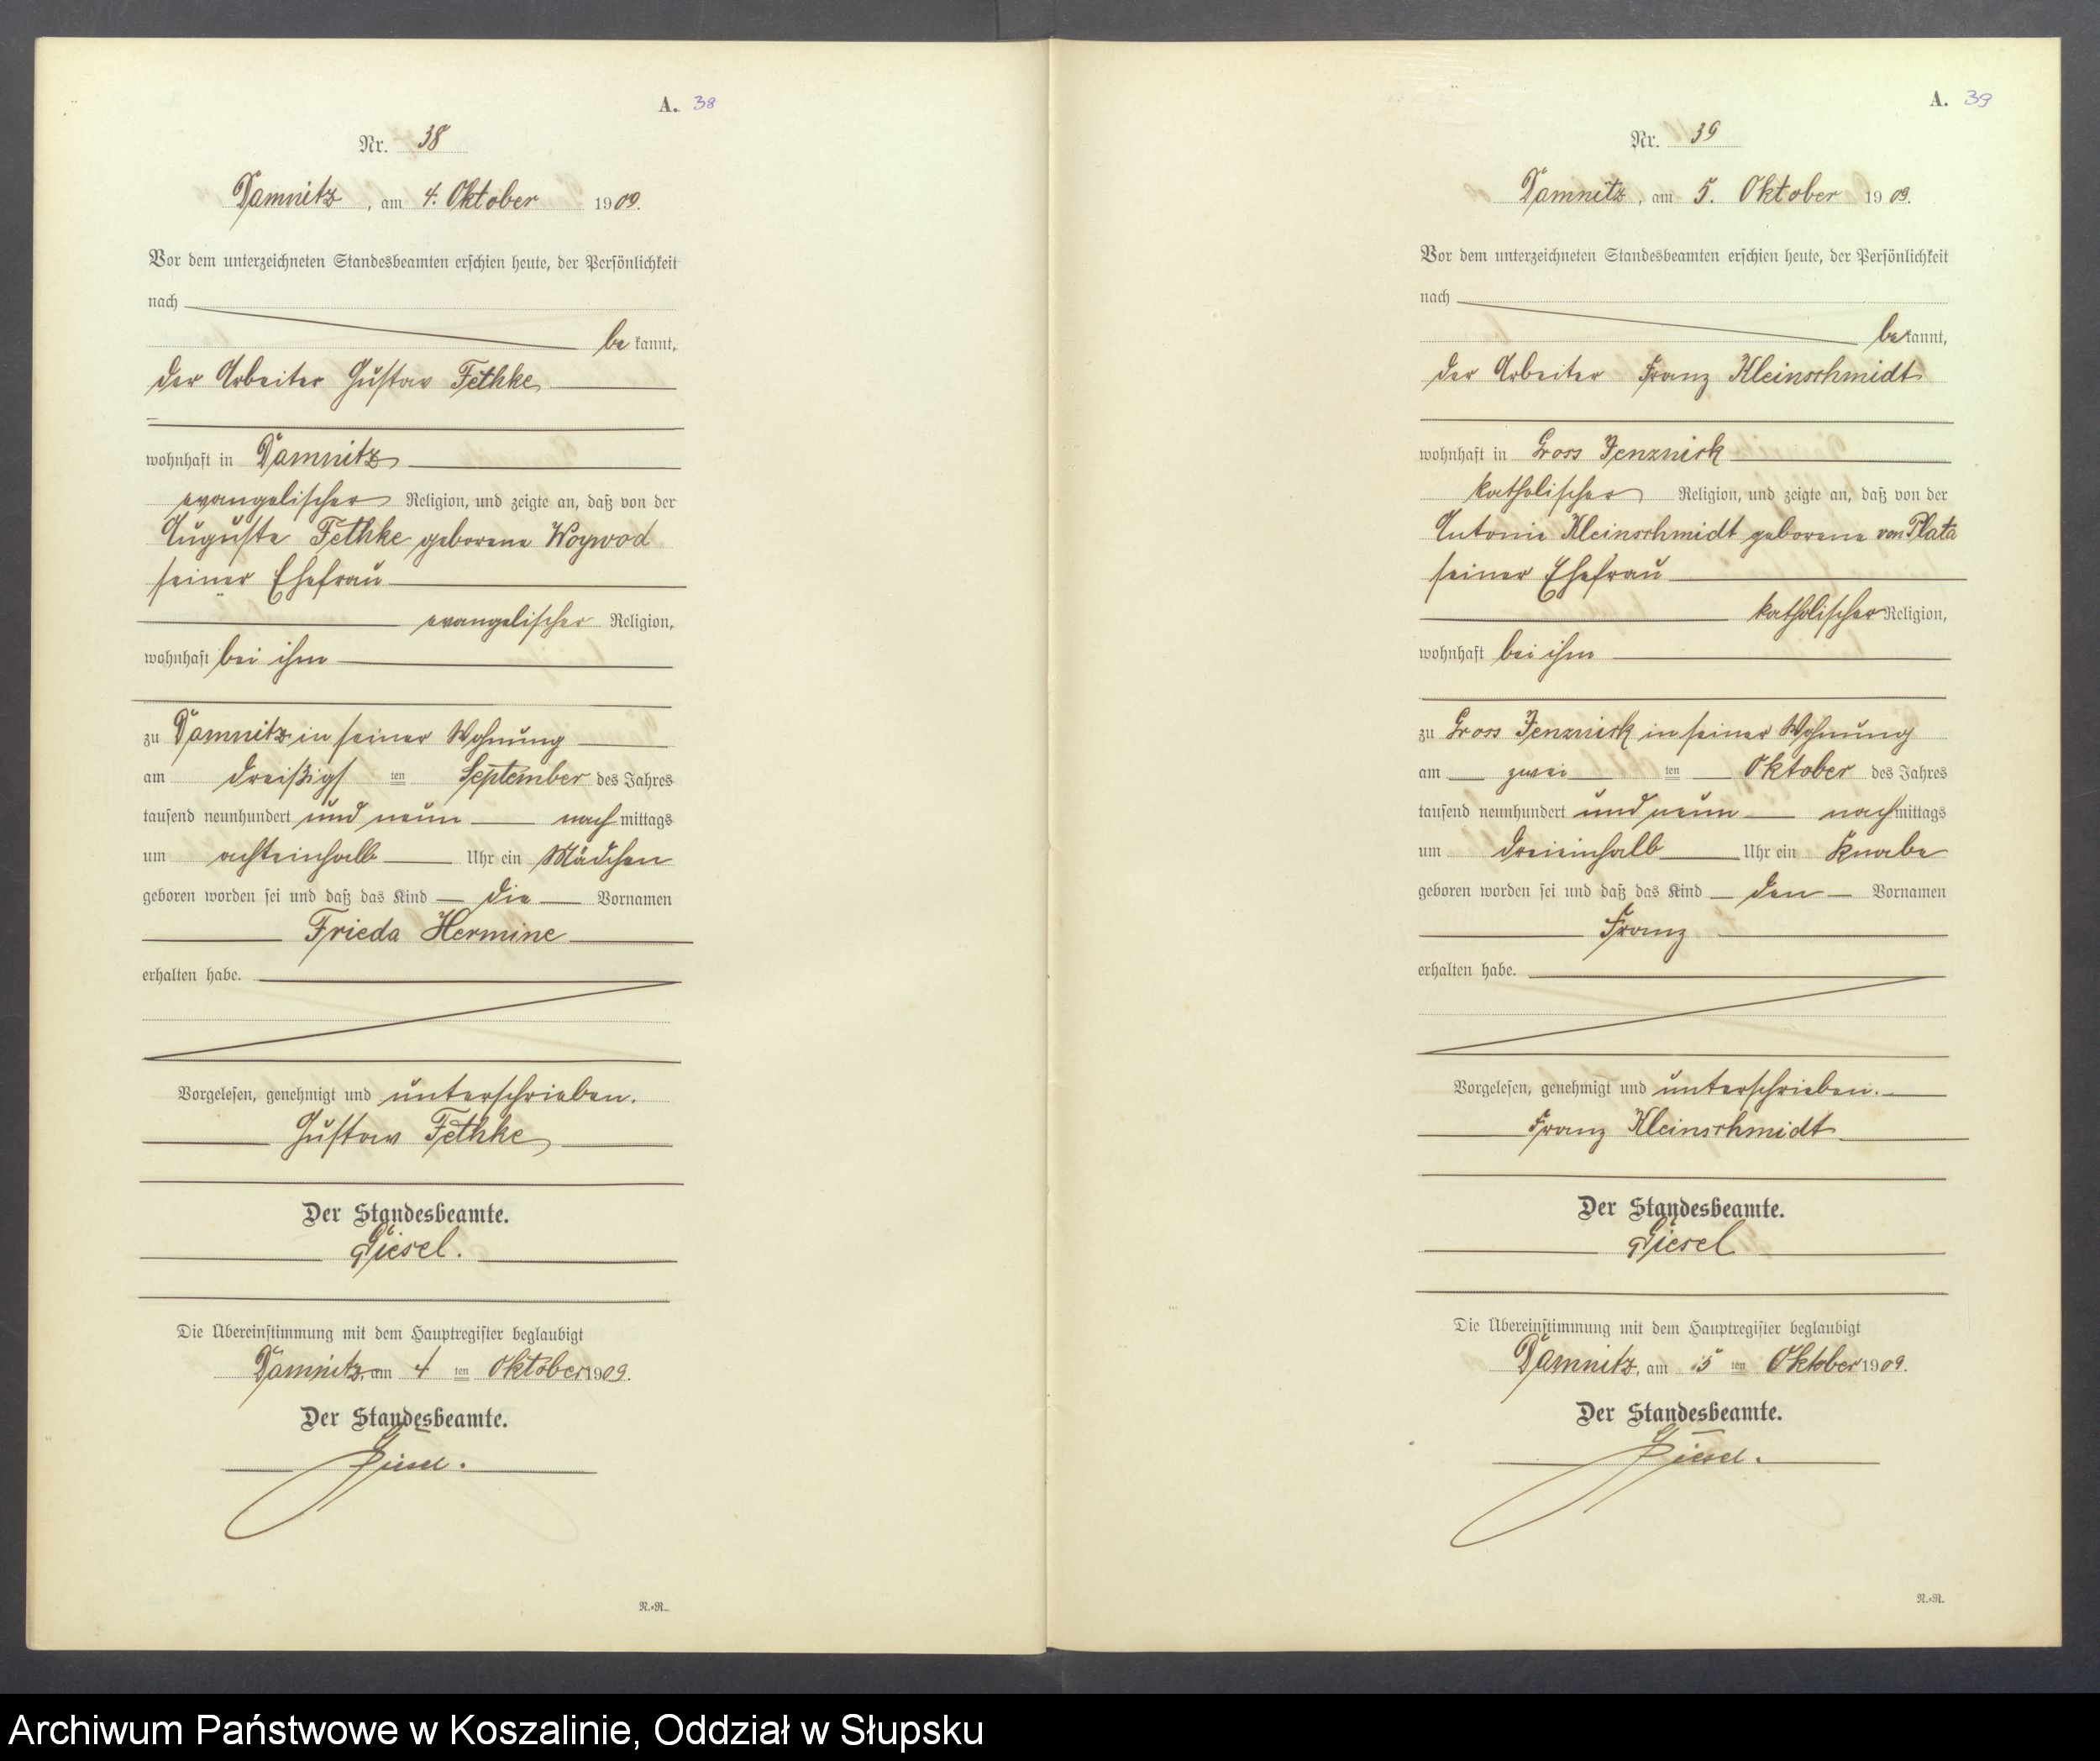 A. 38
Nr. 38
Damnitz, am 4. Oktober 1909.
Vor dem unterzeichneten Standesbeamten erschien heute, der Persönlichkeit
nach
bekannt,
der Arbeiter Gustav Fethke
wohnhaft in Damnitz
evangelischer Religion, und zeigte an, daß von der
Auguste Fethke geborene Woywod
seiner Ehefrau
evangelischer Religion,
wohnhaft bei ihm
zu Damnitz in seiner Wohnung
am dreißigs ten September des Jahres
tausend neunhundert und neun nachmittags
um achteinhalb Uhr ein Mädchen
geboren worden sei und daß das Kind die Vornamen
Frieda Hermine
erhalten habe.
Vorgelesen, genehmigt und unterschrieben.
Gustav Fethke
Der Standesbeamte.
Giesel.
Die Übereinstimmung mit dem Hauptregister beglaubigt
Damnitz, am 4 ten Oktober 1909.
Der Standesbeamte.
Giesel.
N.=R.
A. 39
Nr. 39
Damnitz, am 5. Oktober 1909.
Vor dem unterzeichneten Standesbeamten erschien heute, der Persönlichkeit
nach
bekannt,
der Arbeiter Franz Kleinschmidt
wohnhaft in Gross Jenznick
katholischer Religion, und zeigte an, daß von der
Antonie Kleinschmidt geborene von Plata
seiner Ehefrau
katholischer Religion,
wohnhaft bei ihm
zu Gross Jenznick in seiner Wohnung
am zwei ten Oktober des Jahres
tausend neunhundert und neun nachmittags
um dreieinhalb Uhr ein Knabe
geboren worden sei und daß das Kind den Vornamen
Franz
erhalten habe.
Vorgelesen, genehmigt und unterschrieben.
Franz Kleinschmidt
Der Standesbeamte.
Giesel
Die Übereinstimmung mit dem Hauptregister beglaubigt
Damnitz, am 5 ten Oktober 1909.
Der Standesbeamte.
Giesel.
N.=R.
Archiwum Państwowe w Koszalinie, Oddział w Słupsku